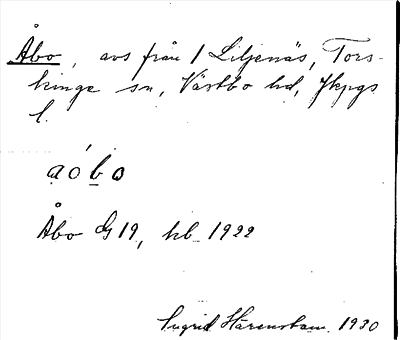 Åbo, avs från 1 Liljenäs, Tors-
kinge sn, Västbo hd, Jkpgs
l.
aóbo
Åbo G19, kb 1922
Ingrid Härenstam 1930